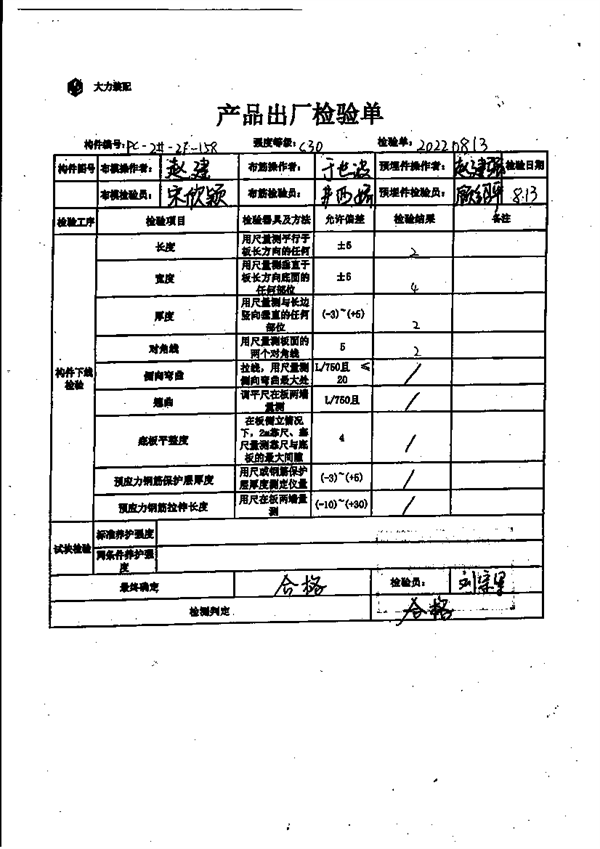 大力装配
产品出厂检验单
构件编号：PC-2#-2F-158 强度等级：C30 检验单：20220813
构件图号 布模操作者：赵建 布筋操作者： 预埋件操作者：赵建 检验日期
布模检验员：宋欣颖 布筋检验员： 预埋件检验员： 8.13
检验工序 检验项目 检验器具及方法 允许偏差 检验结果 备注
构件下线检验
长度 用尺量测平行于板长方向的任何 ±5 2
宽度 用尺量测垂直于板长方向底面的任何部位 ±5 4
厚度 用尺量测与长边竖向垂直的任何部位 (-3)~(+5) 2
对角线 用尺量测板面的两个对角线 5 2
侧向弯曲 拉线，用尺量测侧向弯曲最大处 L/750且 ≤20 /
翘曲 调平尺在板两端量测 L/750且 /
底板平整度 在板侧立情况下，2m靠尺、塞尺量测靠尺与底板的最大间隙 4 /
预应力钢筋保护层厚度 用尺或钢筋保护层厚度测定仪量 (-3)~(+5) /
预应力钢筋拉伸长度 用尺在板两端量测 (-10)~(+30) /
试块检验 标准养护强度
同条件养护强度
最终确定 合格 检验员：
检测判定 合格